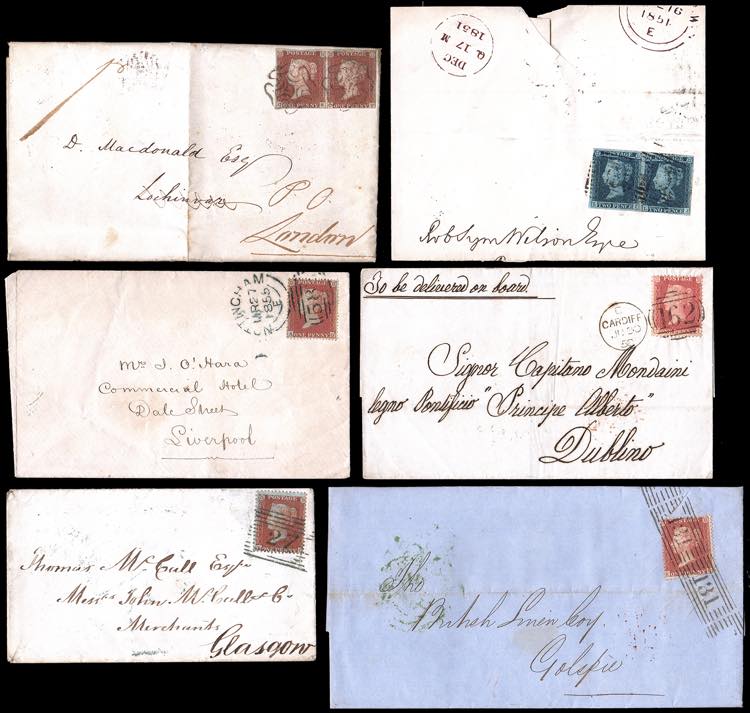 POSTAGE POSTAGE
ONE PENNY ONE PENNY
D. Macdonald Esq
Lochinver P.O.
London
DEC
17 M
1851
3
1851
POSTAGE POSTAGE
TWO PENCE TWO PENCE
Rob Sym Wilson Esqre
MR 27
1855
E
POSTAGE
158
Mr J. O'Hara
Commercial Hotel
Dale Street
Liverpool
To be delivered on board
CARDIFF
JU 30
162
Signor Capitano Mondaini
legno Pontificio "Principe Alberto"
Dublino
POSTAGE
2
Thomas McCall Esqre
Messrs John McCall & Co
Merchants
Glasgow
131
The
British Linen Coy
Golspie